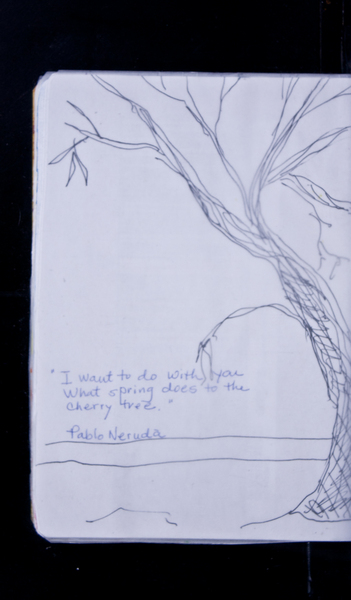 "I want to do with you
What spring does to the
cherry tree."
Pablo Neruda